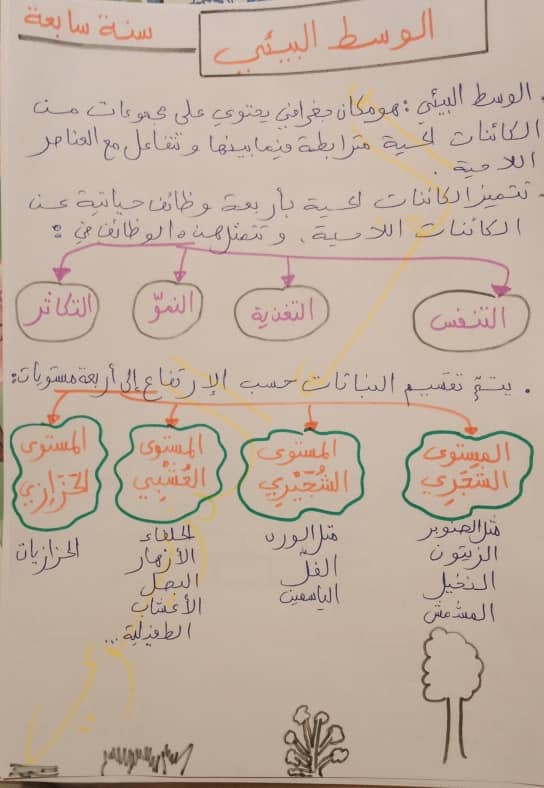 سنة سابعة
الوسط البيئي
. الوسط البيئي : هو مكان جغرافي يحتوي على مجموعات من
الكائنات الحية مترابطة فيما بينها و تتفاعل مع العناصر
اللاحية .
- تتميز الكائنات الحية بأربعة وظائف حياتية عن
الكائنات اللاحية، و تتمثل هذه الوظائف في :
التنفس
التغذية
النموّ
التكاثر
. يتمّ تقسيم النباتات حسب الإرتفاع إلى أربعة مستويات :
المستوى
الشَّجَرِي
المستوى
الشُّجَيْرِي
المستوى
العُشْبِي
المستوى
الحَزَازِي
مثل الصنوبر
الزيتون
النخيل
المشمش
مثل الورد
الفلّ
الياسمين
الحلفاء
الأزهار
البصل
الأعشاب
الطفيلية ...
الحزازيات